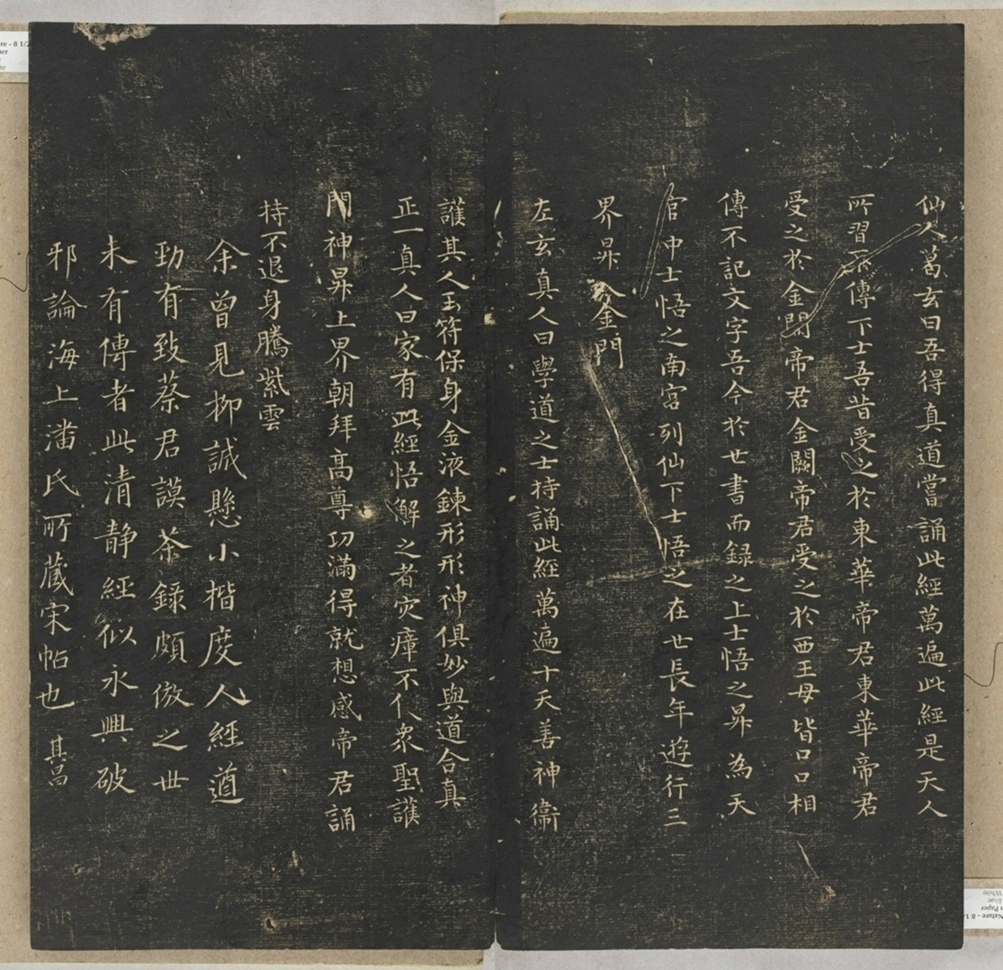 仙人葛玄曰吾得真道嘗誦此經萬遍此經是天人
所習不傳下士吾昔受之於東華帝君東華帝君
受之於金闕帝君金闕帝君受之於西王母皆口口相
傳不記文字吾今於世書而録之上士悟之昇為天
官中士悟之南宮列仙下士悟之在世長年遊行三
界昇入金門
左玄真人曰學道之士持誦此經萬遍十天善神衛
護其人玉符保身金液鍊形形神俱妙與道合真
正一真人曰家有此經悟解之者灾瘴不 衆聖護
門神昇上界朝拜高尊功滿得就想感帝君誦
持不退身騰紫雲
余曾見柳誠懸小楷度人經遒
勁有致蔡君謨茶錄頗倣之世
未有傳者此清靜經似永興破
邪論海上潘氏所藏宋帖也 其昌